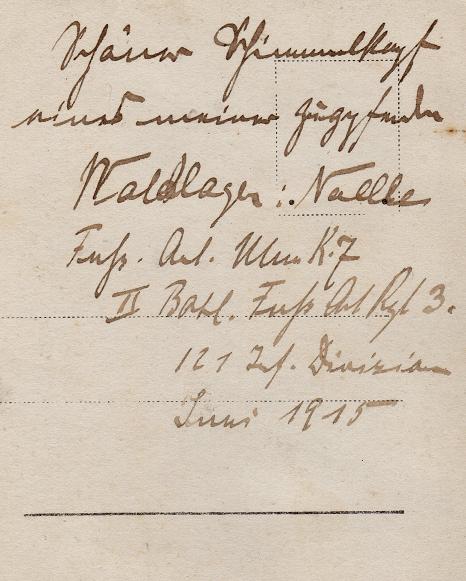 Schöner Schimmelkopf
eines meiner Zugpferde
Waldlager: Noelle
Fuß. Art. Mun. K. 7
II Batl. Fuß Art Rgt 3.
121 Inf. Division
Juni 1915